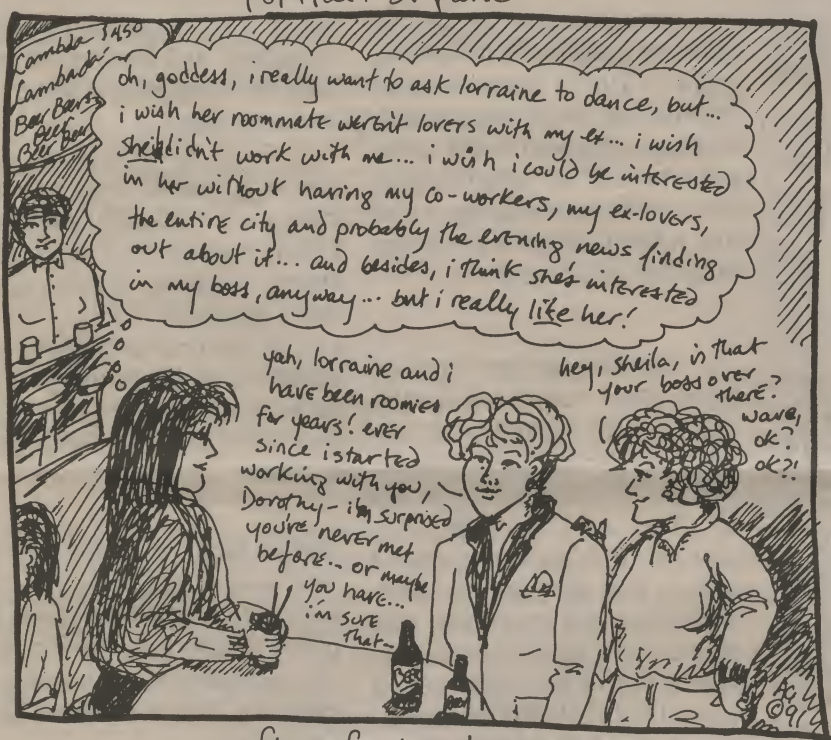 Portland
Cambda $4.50
Lambada
Beer Beer
Beer
Beer Beer
oh, goddess, i really want to ask lorraine to dance, but...
i wish her roommate weren't lovers with my ex... i wish
she didn't work with me... i wish i could be interested
in her without having my co-workers, my ex-lovers,
the entire city and probably the evening news finding
out about it... and besides, i think she's interested
in my boss, anyway... but i really like her!
yah, lorraine and i
have been roomies
for years! ever
since i started
working with you,
Dorothy - i'm surprised
you've never met
before... or maybe
you have...
i'm sure
that-
hey, sheila, is that
your boss over
there?
wave,
ok?
ok?!
BEER
BEER
©91